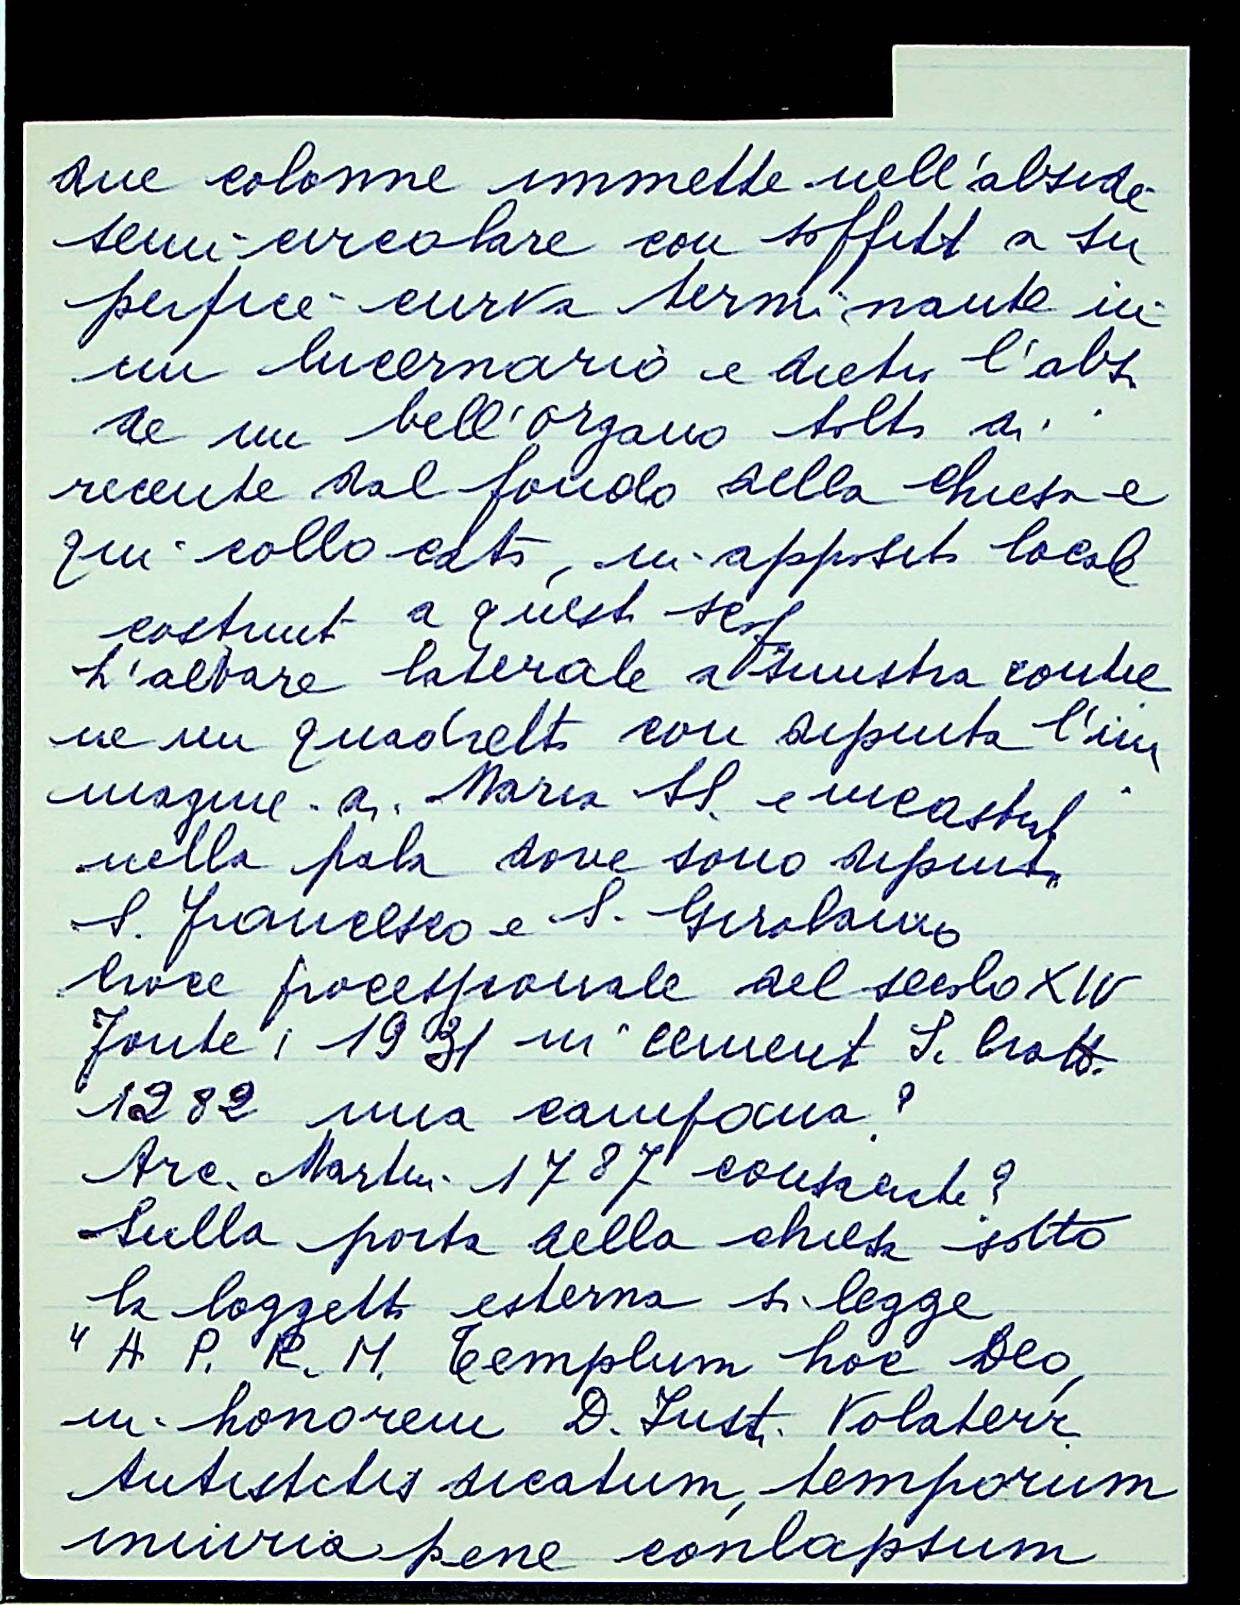 due colonne immette nell'abside
semi-circolare con soffitt a su
perfice curva terminante in
un lucernario e dietro l'absi
de un bell'organo tolto di
recente dal fondo della chiesa e
qui collocato, in apposito locale
costruit a questo scop
L'altare laterale a sinistra contie
ne un quadretto con dipinta l'im
magine di Maria SS. e incastrat
nella pala dove sono dipinti
S. Francesco e S. Girolamo
Croce processionale del secolo XIV
Fonte: 1931 in cement S. Batt.
1282 una campana?
Arc. Martini 1787 consacrante?
Sulla porta della chiesa sotto
la loggetta esterna si legge
"A P. R. M. Templum hoc Deo,
in honorem D. Iust. Volaterr.
Antistitis dicatum, temporum
iniuria pene conlapsum